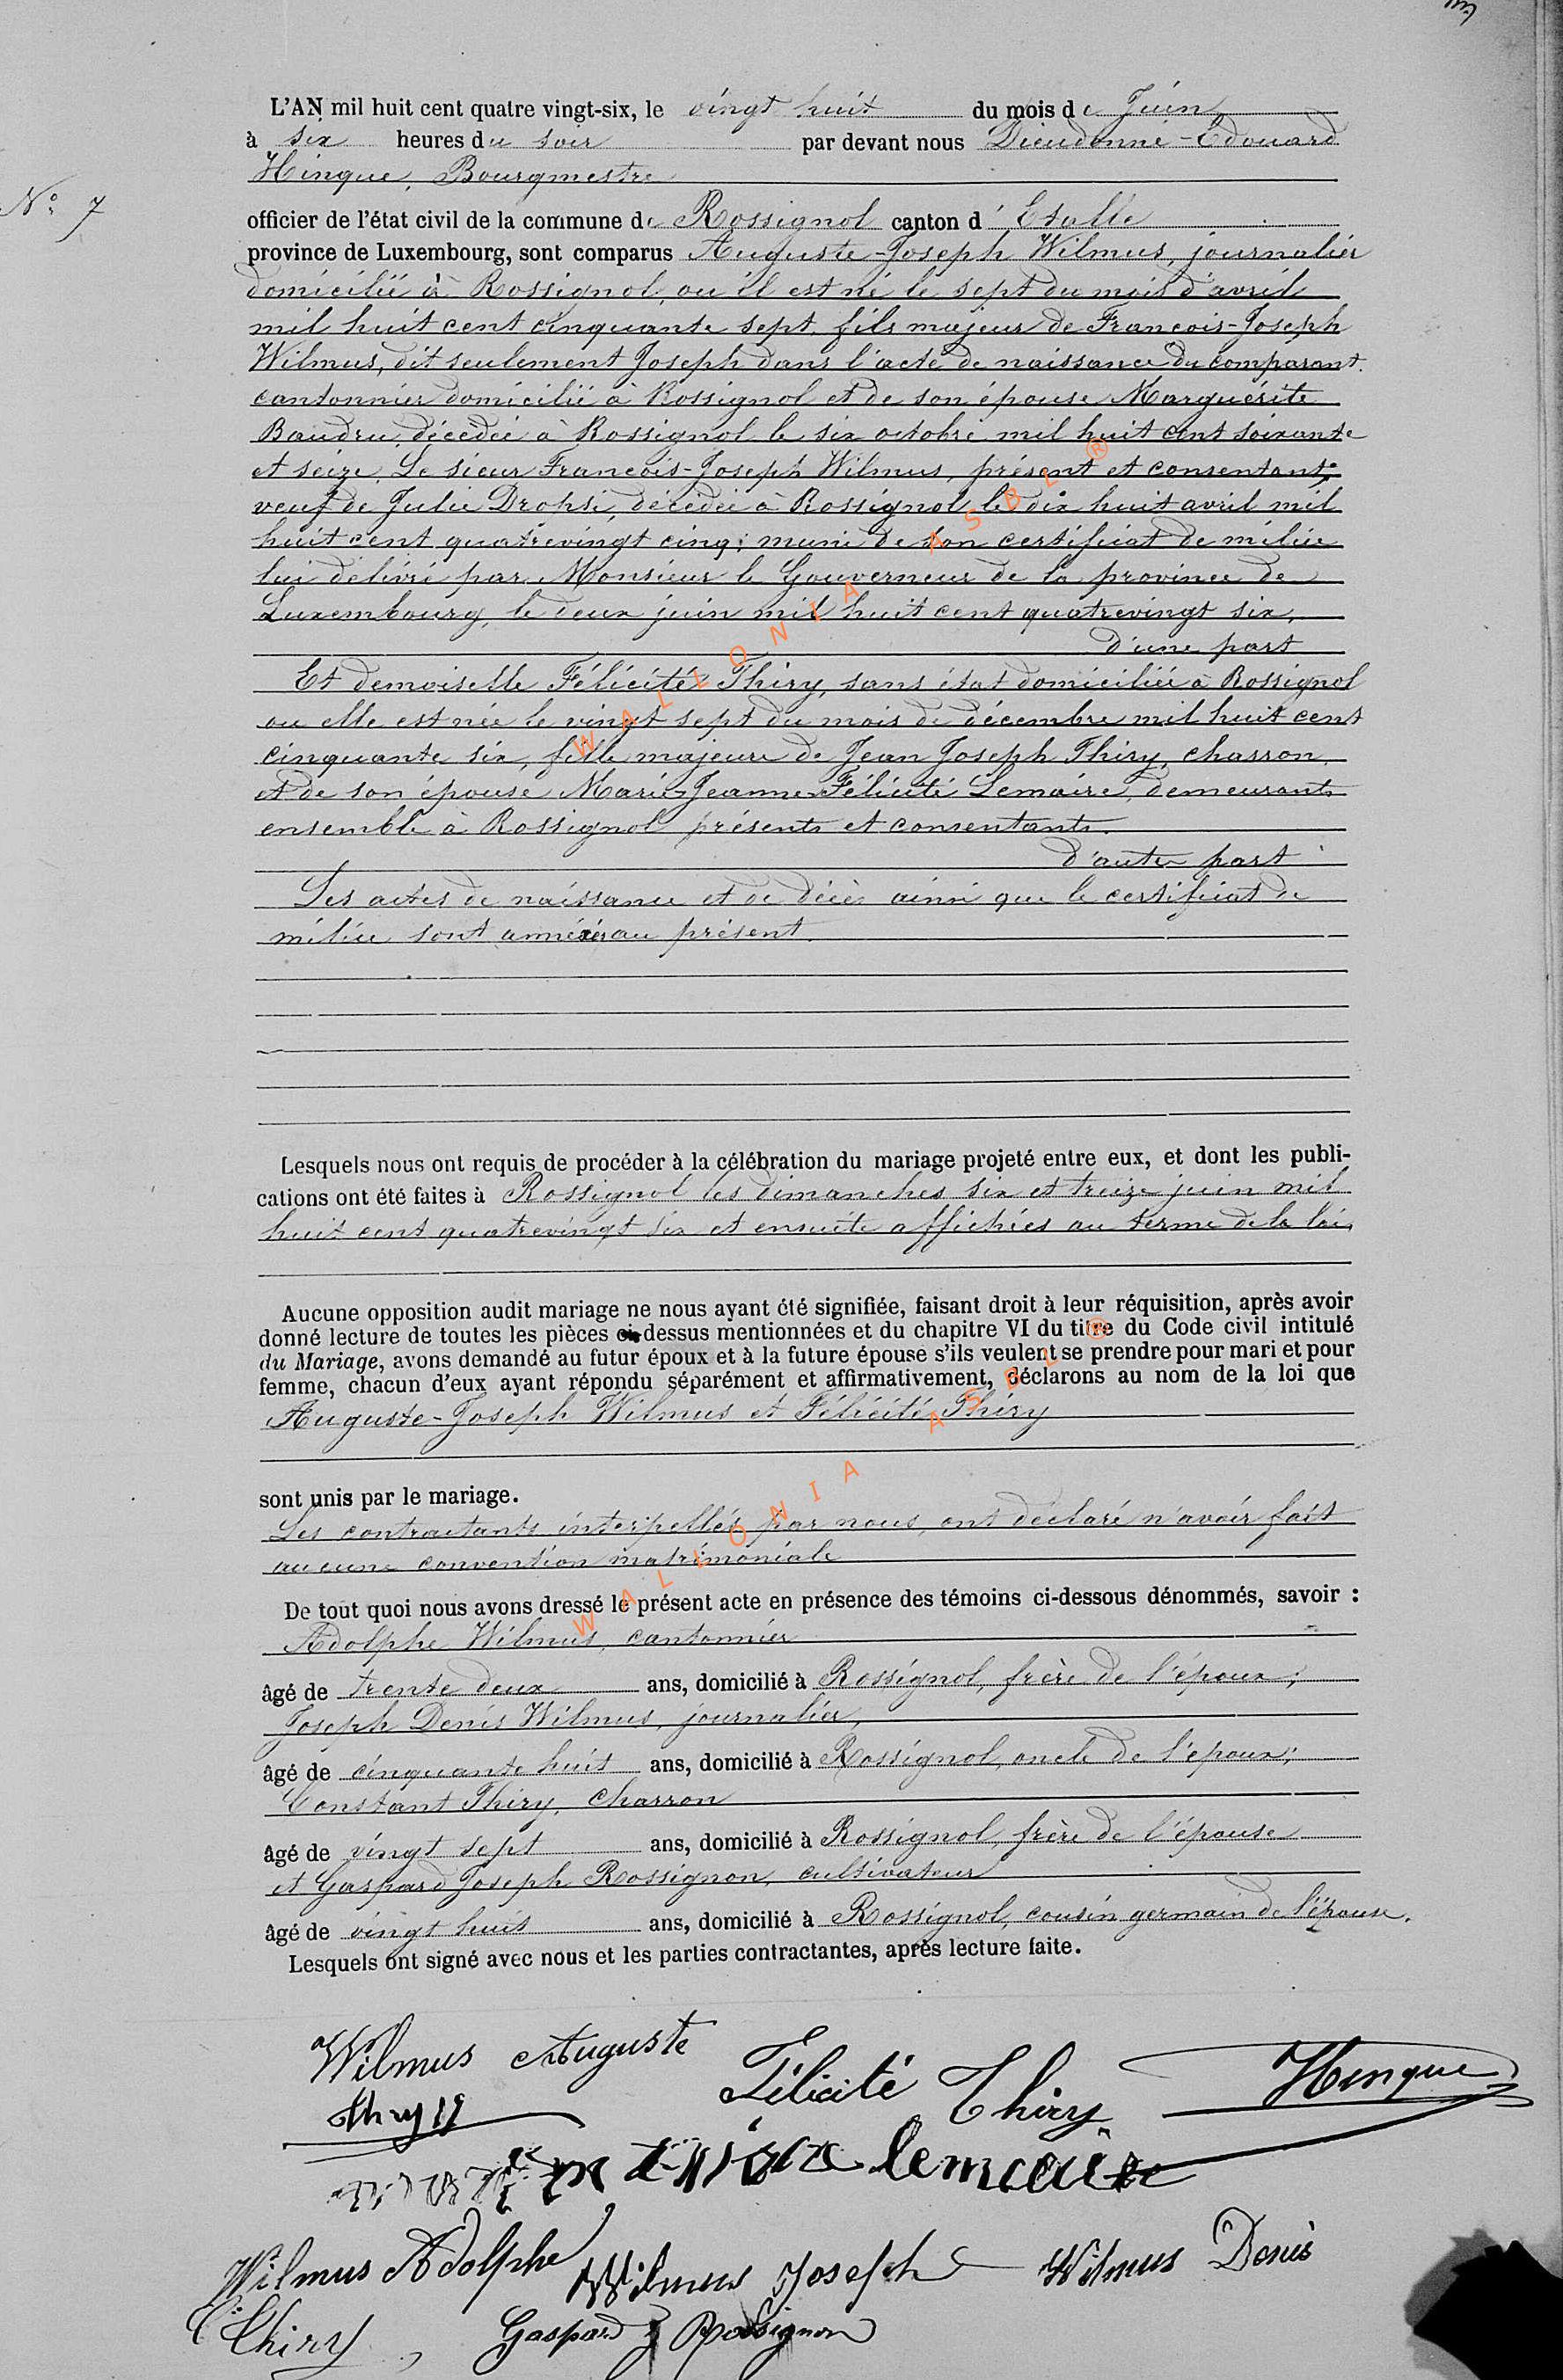 L'AN mil huit cent quatre vingt-six, le vingt huit du mois de Juin
à six heures du soir par devant nous Dieudonné-Edouard
Hinque, Bourgmestre
N° 7
officier de l'état civil de la commune de Rossignol canton d'Etalle
province de Luxembourg, sont comparus Auguste-Joseph Wilmus, journalier
domicilié à Rossignol, où il est né le sept du mois d'avril
mil huit cent cinquante sept, fils majeur de François-Joseph
Wilmus, dit seulement Joseph dans l'acte de naissance du comparant.
cantonnier domicilié à Rossignol et de son épouse Marguérite
Baudru, décédée à Rossignol le six octobre mil huit cent soixante
et seize. Le sieur François-Joseph Wilmus, présent et consentant;
veuf de Julie Drohsi, décédée à Rossignol le dix huit avril mil
huit cent quatrevingt cinq; muni de son certificat de milice
lui délivré par Monsieur le Gouverneur de la province de
Luxembourg, le deux juin mil huit cent quatrevingt six,
d'une part
Et demoiselle Félicité Thiry, sans état domiciliée à Rossignol
ou elle est née le vingt sept du mois de décembre mil huit cent
cinquante six, fille majeure de Jean Joseph Thiry, charron,
et de son épouse Marie-Jeanne-Félicité Lemaire, demeurants
ensemble à Rossignol présents et consentants.
d'autre part
Les actes de naissance et de décès ainsi que le certificat de
milice sont annéxés au présent.
Lesquels nous ont requis de procéder à la célébration du mariage projeté entre eux, et dont les publi-
cations ont été faites à Rossignol les dimanches six et treize juin mil
huit cent quatrevingt six et ensuite affichées au terme de la loi,
Aucune opposition audit mariage ne nous ayant été signifiée, faisant droit à leur réquisition, après avoir
donné lecture de toutes les pièces ci-dessus mentionnées et du chapitre VI du titre du Code civil intitulé
du Mariage, avons demandé au futur époux et à la future épouse s'ils veulent se prendre pour mari et pour
femme, chacun d'eux ayant répondu séparément et affirmativement, déclarons au nom de la loi que
Auguste-Joseph Wilmus et Félicité Thiry
sont unis par le mariage.
Les contractants interpellés par nous, ont déclaré n'avoir fait
aucune convention matrimoniale
De tout quoi nous avons dressé le présent acte en présence des témoins ci-dessous dénommés, savoir :
Adolphe Wilmus, cantonnier
âgé de trente deux ans, domicilié à Rossignol, frère de l'époux;
Joseph Denis Wilmus, journalier,
âgé de cinquante huit ans, domicilié à Rossignol, oncle de l'époux;
Constant Thiry, charron
âgé de vingt sept ans, domicilié à Rossignol, frère de l'épouse
et Gaspard Joseph Rossignon, cultivateur
âgé de vingt huit ans, domicilié à Rossignol, cousin germain de l'épouse.
Lesquels ont signé avec nous et les parties contractantes, après lecture faite.
Wilmus Auguste
Félicité Thiry
Hinque
Thiry
lemaire
Wilmus Adolphe Wilmus Joseph Wilmus Denis
C. Thiry, Gaspard J Rossignon
WALLONIA ASBL ®
WALLONIA ASBL ®